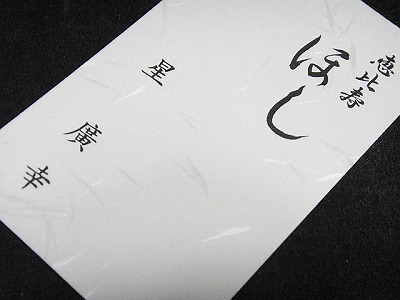 恵比寿
ほし
星 廣幸